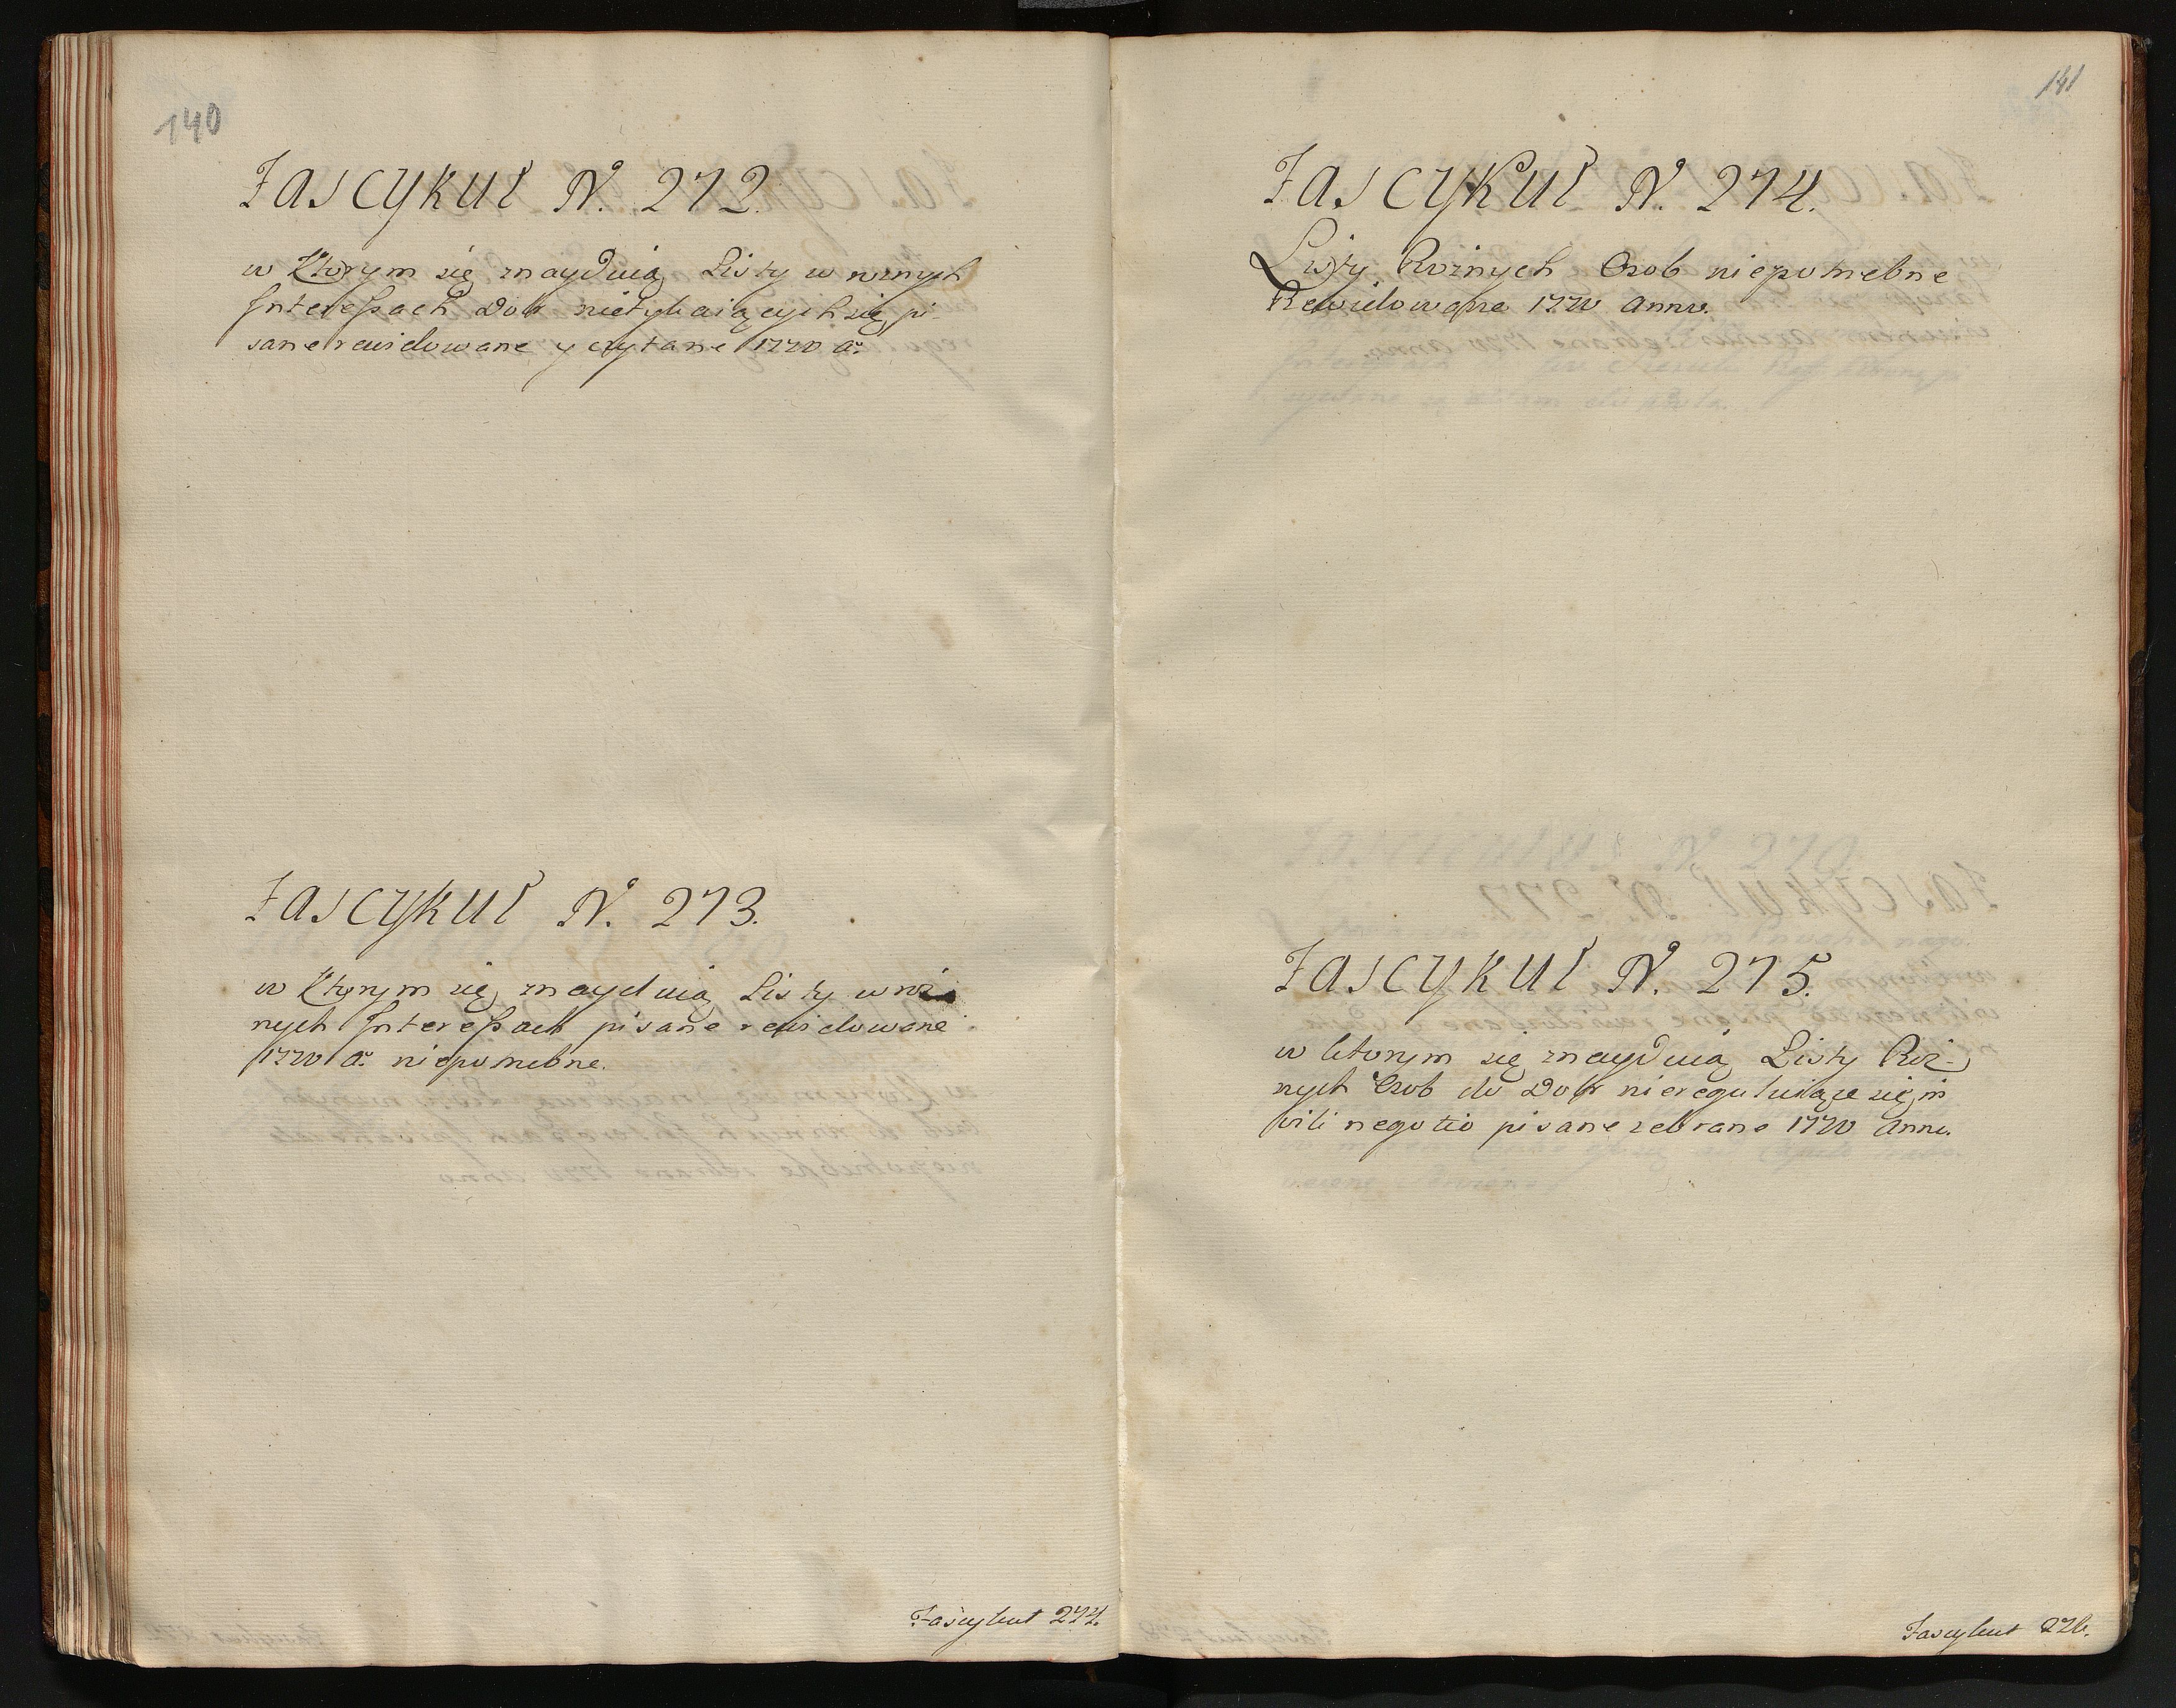 140
Fascykuł N. 272.
w Ktorym się znayduią Listy w roznych
Interessach Dobr nietykaiących się pi
sane rewidowane y czytane 1770 Aº.
Fascykuł N. 273.
w Ktorym się znayduią Listy w roż
nych Interessach pisane rewidowane
1770 Aº. niepotrzebne.
Fascykuł 274.
141
Fascykuł N. 274.
Listy Rożnych Osob niepotrzebne
Rewidowane 1770 Anno.
Fascykuł N. 275.
w ktorym się znayduią Listy Roż-
nych Osob do Dobr niereguluiące się in
vili negotio pisane zebrane 1770 Anno.
Fascykuł 276.